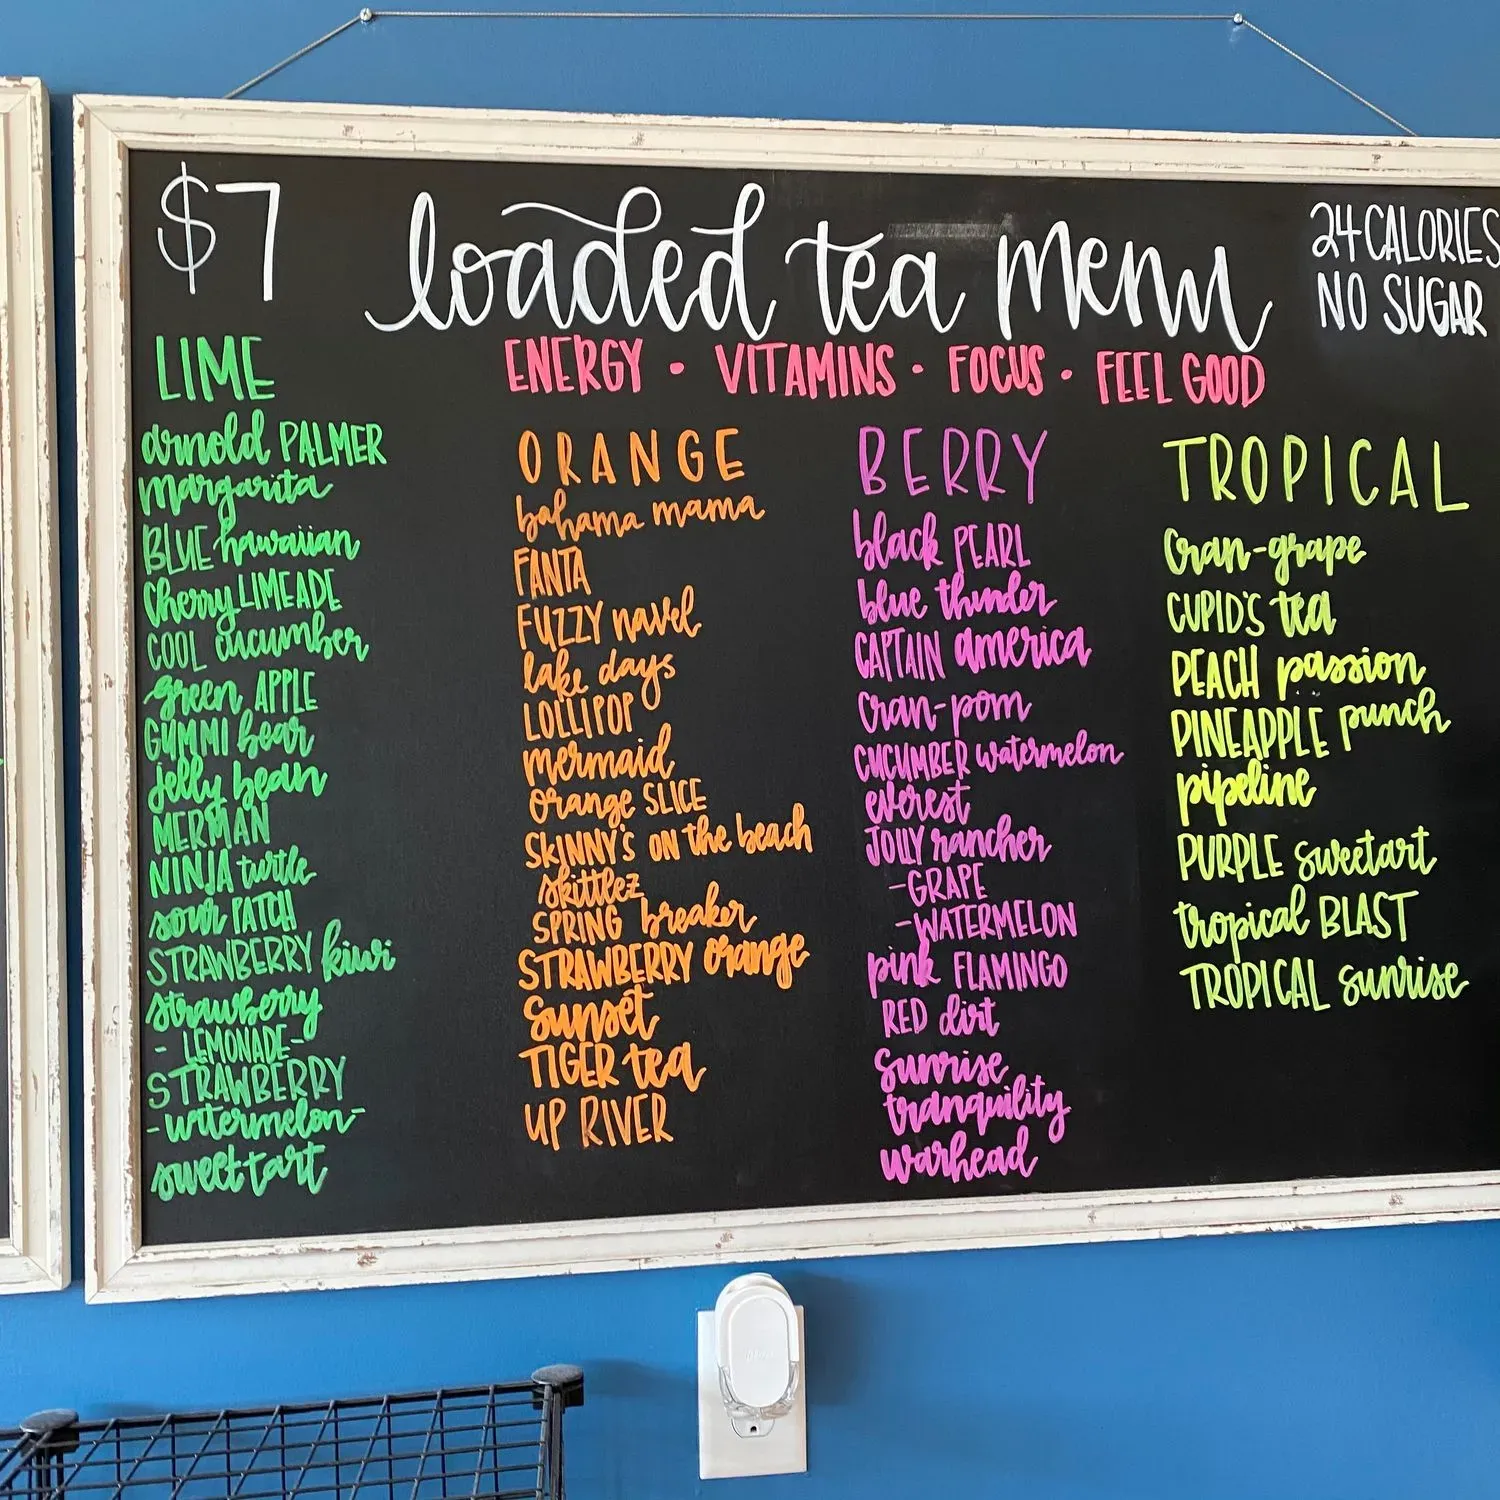 $7
loaded tea menu
24 CALORIES
NO SUGAR
ENERGY · VITAMINS · FOCUS · FEEL GOOD
LIME
arnold PALMER
margarita
BLUE hawaiian
Cherry LIMEADE
COOL cucumber
green APPLE
GUMMI bear
jelly bean
MERMAN
NINJA turtle
sour PATCH
STRAWBERRY kiwi
strawberry
- LEMONADE-
STRAWBERRY
-watermelon-
sweettart
ORANGE
bahama mama
FANTA
FUZZY navel
lake days
LOLLIPOP
mermaid
orange SLICE
SKINNY'S ON the beach
skittlez
SPRING breaker
STRAWBERRY orange
Sunset
TIGER tea
UP RIVER
BERRY
black PEARL
blue thunder
CAPTAIN america
cran-pom
CUCUMBER watermelon
everest
JOLLY rancher
-GRAPE
-WATERMELON
pink FLAMINGO
RED dirt
sunrise
tranquility
warhead
TROPICAL
Cran-grape
CUPID'S tea
PEACH passion
PINEAPPLE punch
pipeline
PURPLE sweetart
tropical BLAST
TROPICAL sunrise